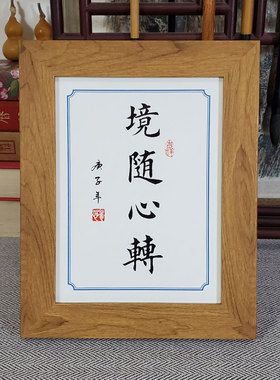 境随心轉
庚子年